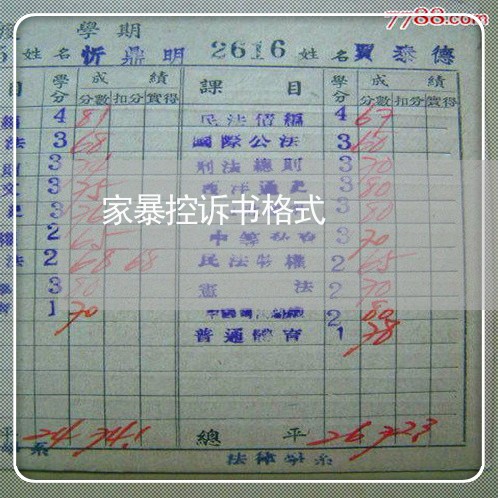 7788.com
學期
姓名 忻鼎明 2616 姓名 賈泰德
目 學分 成績 課目 學分 成績
分數 扣分 實得 分數 扣分 實得
4 81 民法債編 4 67
法 3 68 國際公法 3 60
3 刑法總則 3 70
文 3 75 西洋通史 3 80
3 3 80
權 2 65 3 70
法 2 68 68 民法物權 2 65
3 80 憲法 2 70
育 1 70 2 80
普通體育 1 78
家暴控诉书格式
平 24 74.1 總平 26 72.3
系 法律學系